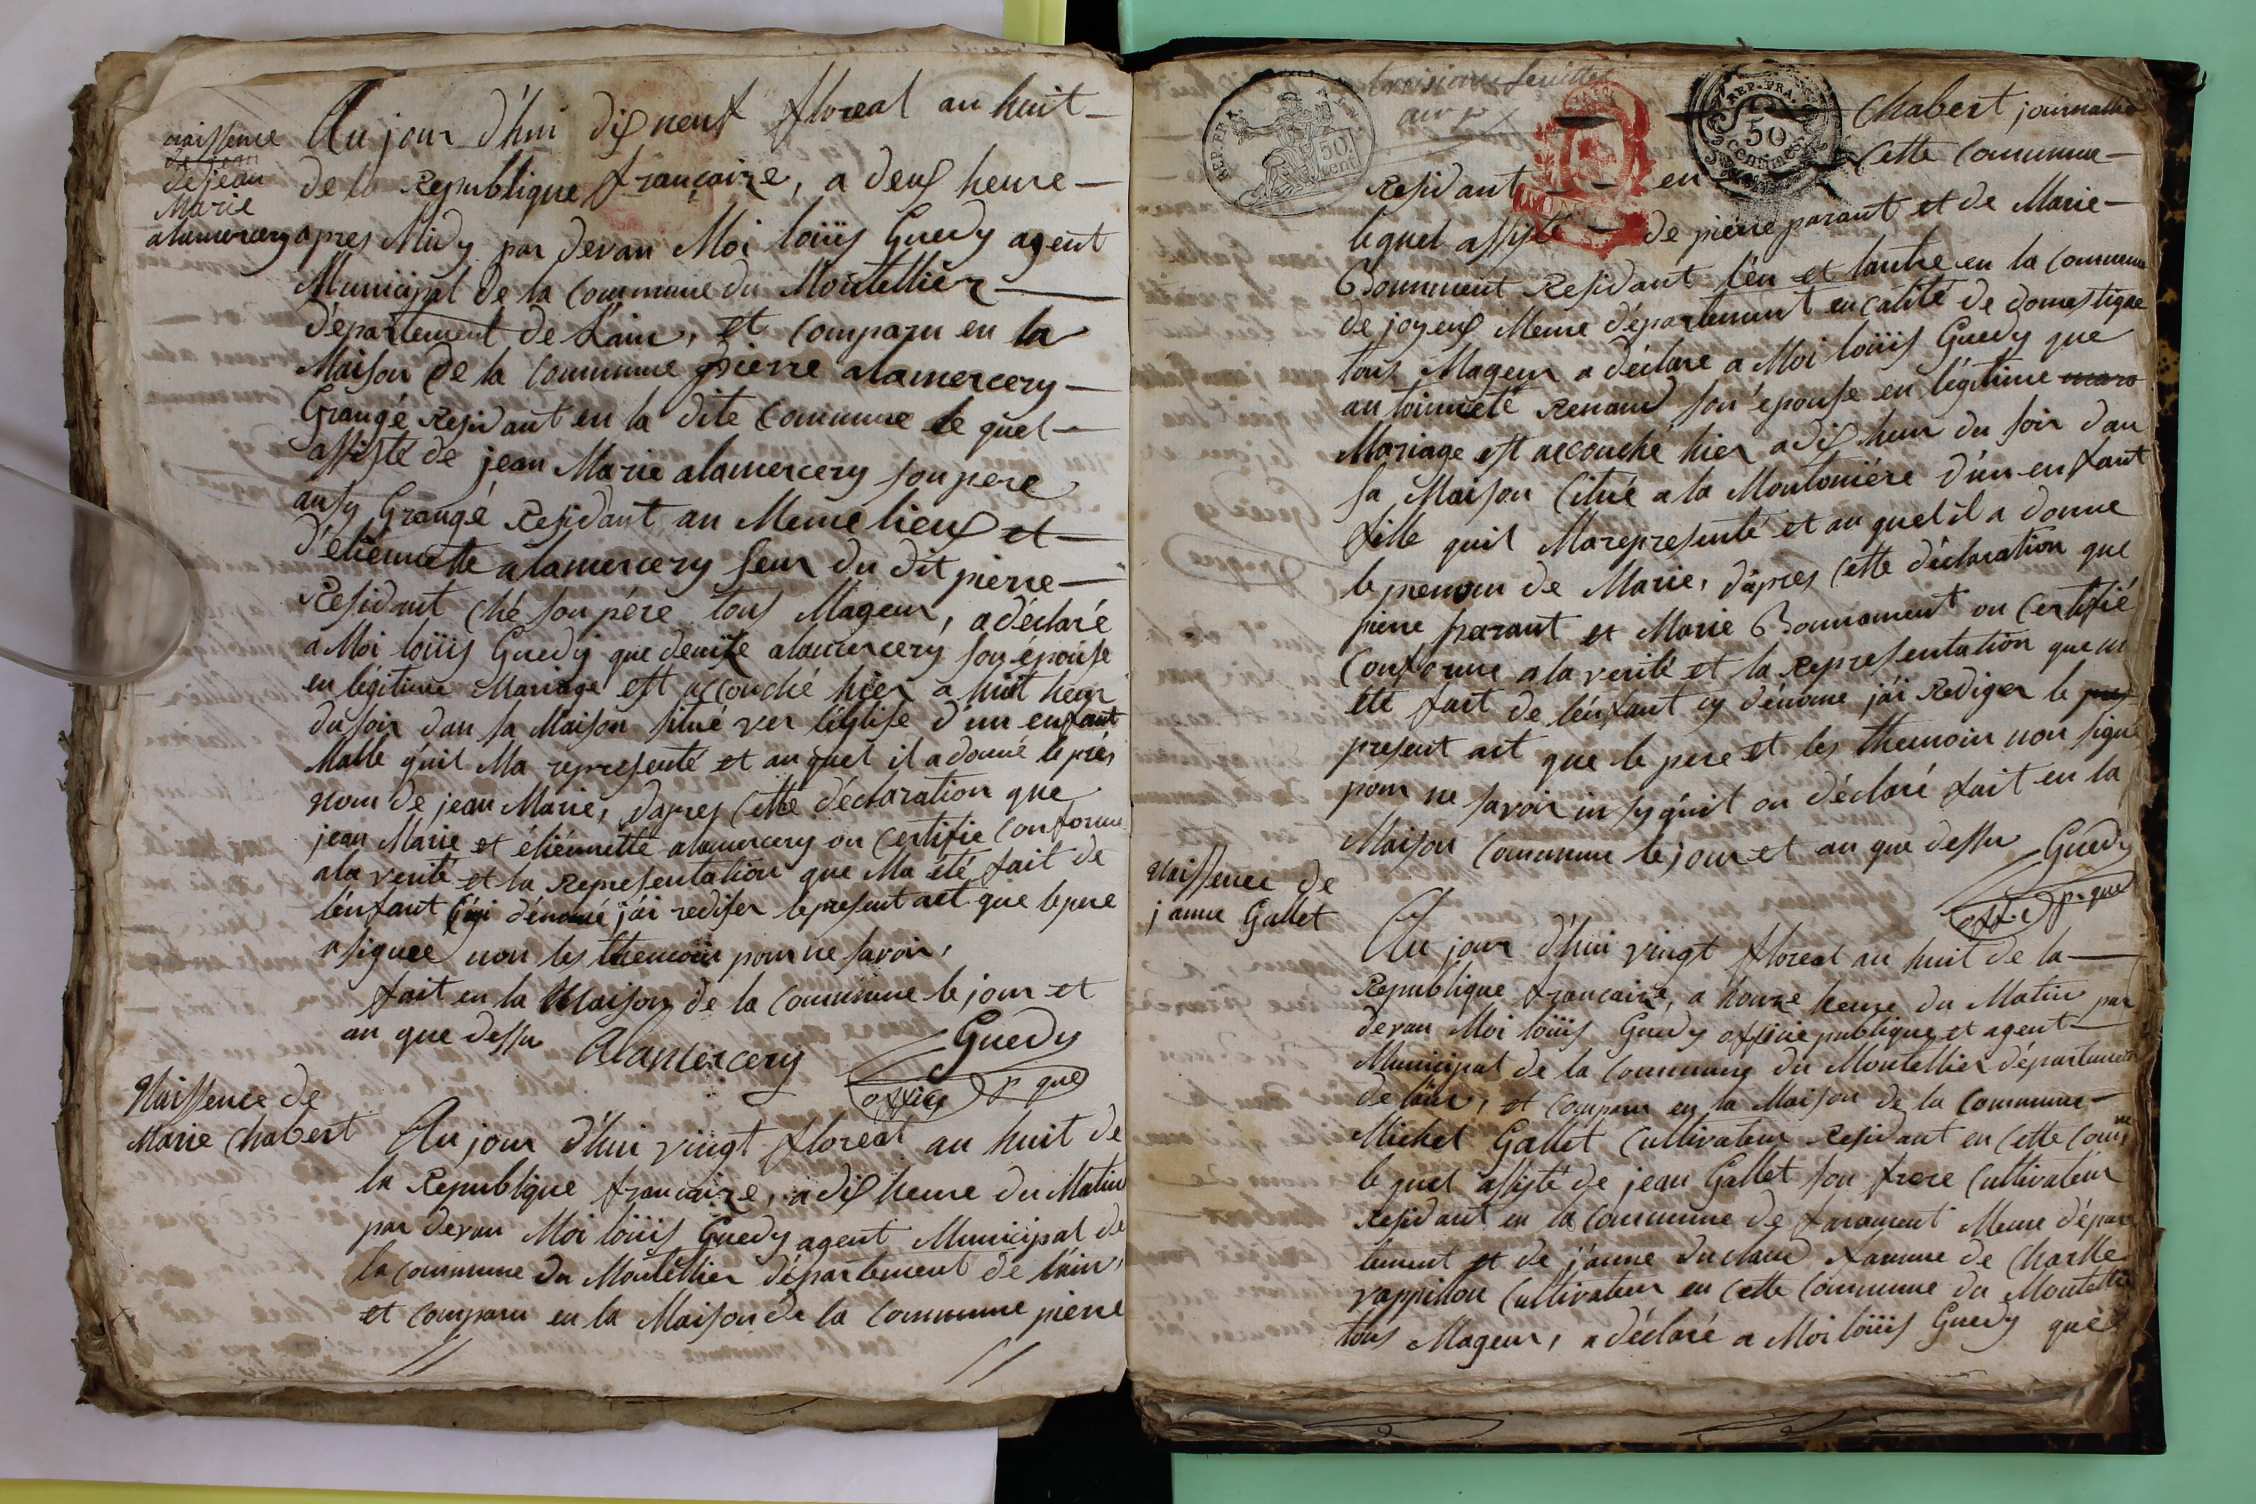 naissence
de jean
de jean
Marie
alamercery
Au jour d'hui dix neuf floreal an huit
de la Republique françaize, a deux heure
apres Midy par devan Moi loüis Guedy agent
Municipal de la Commune du Montellier
département de L'ain, et comparu en la
Maison de la Commune pierre alamercery
Grangé Residant en la dite Commune le quel
assisté de jean Marie alamercery son pere
ausy Grangé Residant au Meme lieux et
d'etiennette alamercery seur du dit pierre
Residant ché son pére tous Mageur, a déclaré
a Moi loüis Guedy que denize alamercery son épouse
en légitime Mariage est accouché hier a huit heur
du soir dan sa Maison situé ver l'églize d'un enfant
Malle quil Ma representé et au quel il a donné le prés
nom de jean Marie, d'apres cette déclaration que
jean Marie et étiennette alamercery on certifie conforme
a la verité et la Representation que Ma été fait de
l'enfant cyi dénomé j'ai redifer le present act que le pere
a signee non les themoin pour ne savoir,
fait en la Maison de la Commune le jour et
an que dessu
Alamercery Guedy
officie p. que
Naissence de
Marie Chabert
Au jour d'hui vingt floreal an huit de
la Republique françaize, a dix heure du Matin
par devan Moi loüis Guedy agent Municipal de
la commune du Montellier département de l'ain,
et comparu en la Maison de la Commune pierre
troisieme feuillet
REP. FRA.
50 cent
REP. FRA.
50
centimes
Chabert journallie
Residant en cette Commune
lequel assisté de pierre parant et de Marie
Bonnment Residant l'en et lautre en la commune
de joyeux Meme département en calité de domestique
tous Mageur a déclaré a Moi loüis Guedy que
antoinneté Renaud son épouse en légitime maro
Mariage est accouché hier a dix heur du soir dan
sa Maison citué a la Moutoniére d'un enfant
fille quil Ma representé et au quel il a donne
le prenom de Marie, d'apres cette déclaration que
pierre parant et Marie Bonnament on certifié
conforme a la verité et la Representation que m
été fait de l'enfant cy dénomé j'ai Rediger le pres
present act que le pere et les themoin non signé
pour ne savoir in sy quit on déclaré fait en la
Maison Commune le jour et an que dessu Guedy
officie p. que
Naissence de
janne Gallet
Au jour d'hui vingt floreal an huit de la
Republique françaize, a honze heure du Matin par
devan Moi loüis Guedy officie publique et agent
Municipal de la Commune du Montellier département
de l'ain, et comparu en la Maison de la Commune
Michel Gallet Cultivateur Residant en cette Comne
le quel assisté de jean Gallet son frere Cultivateur
Residant en la Commune de farament Meme dépar
tement et de janne duclaud famme de Charlle
rappillon Cultivateur en cette Commune du Montellie
tous Mageur, a déclaré a Moi loüis Guedy que